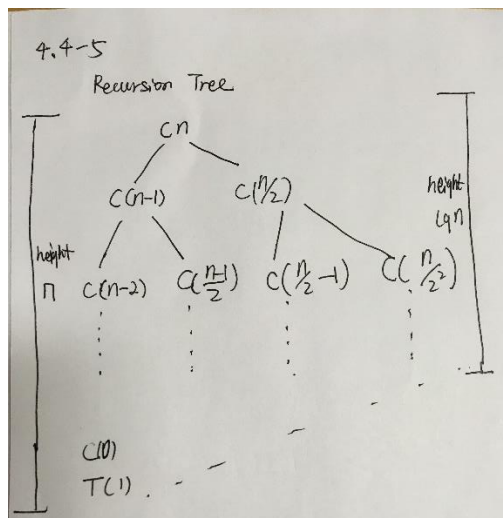 4.4-5
Recursion Tree
Cn
C(n-1) C(n/2)
height
n
height
lgn
C(n-2) C((n-1)/2) C(n/2 -1) C(n/2²)
C(1)
T(1)